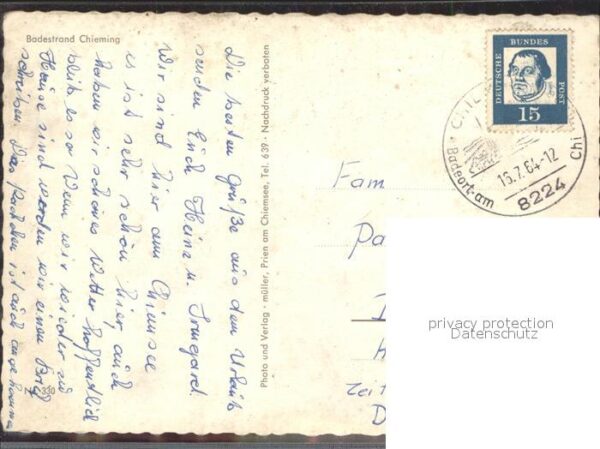 Badestrand Chieming
Die besten Grüße aus dem Urlaub
senden Euch Heinz u. Irmgard.
Wir sind hier am Chimsee
es ist sehr schön hier, auch
haben wir schönes Wetter hoffentlich
bleibt es so Wenn wir wieder zu
Hause sind werden wir einen Brief
schreiben. Das ist auch angekommen
330
Photo und Verlag · müller, Prien am Chiemsee, Tel. 639 · Nachdruck verboten
DEUTSCHE BUNDES POST
15
CHI
Badeort am Chi
15.7.64-12
8224
Fam
privacy protection
Datenschutz